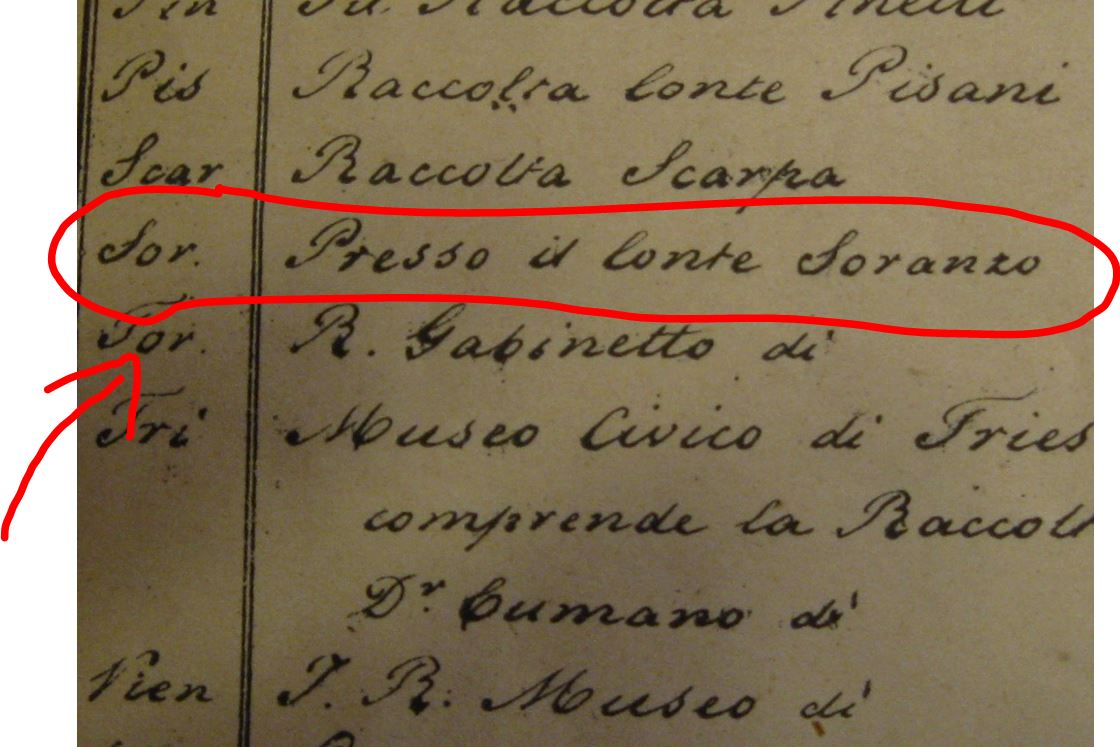 Pin Fu. Raccolta Pinelli
Pis Raccolta Conte Pisani
Scar Raccolta Scarpa
Sor. Presso il Conte Soranzo
Tor. R. Gabinetto di
Tri Museo Civico di Tries
comprende la Raccolt
Dr. Cumano di
Vien I. R. Museo di